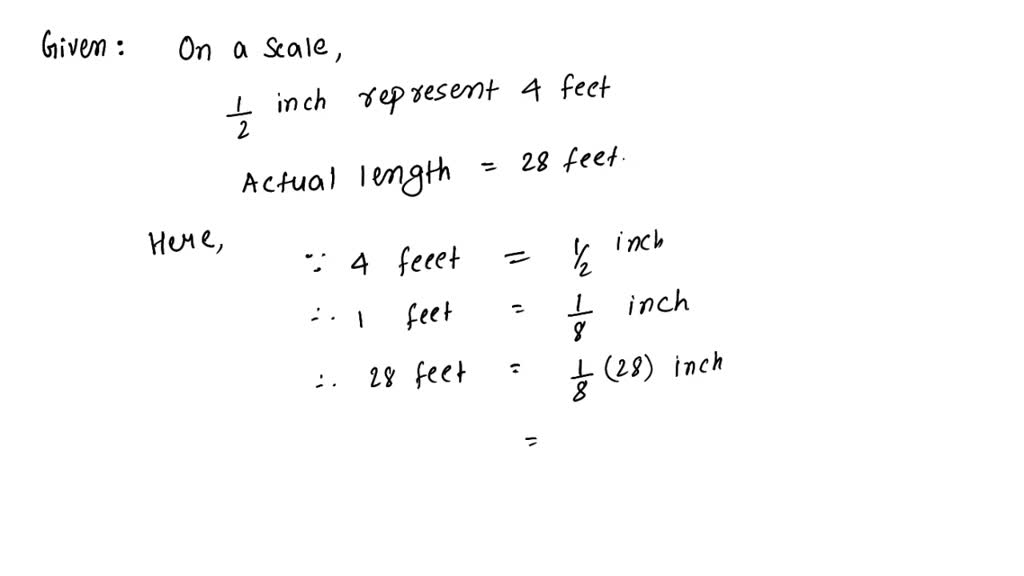 Given: On a scale,
1/2 inch represent 4 feet
Actual length = 28 feet.
Here,
∵ 4 feeet = 1/2 inch
∴ 1 feet = 1/8 inch
∴ 28 feet = 1/8 (28) inch
=